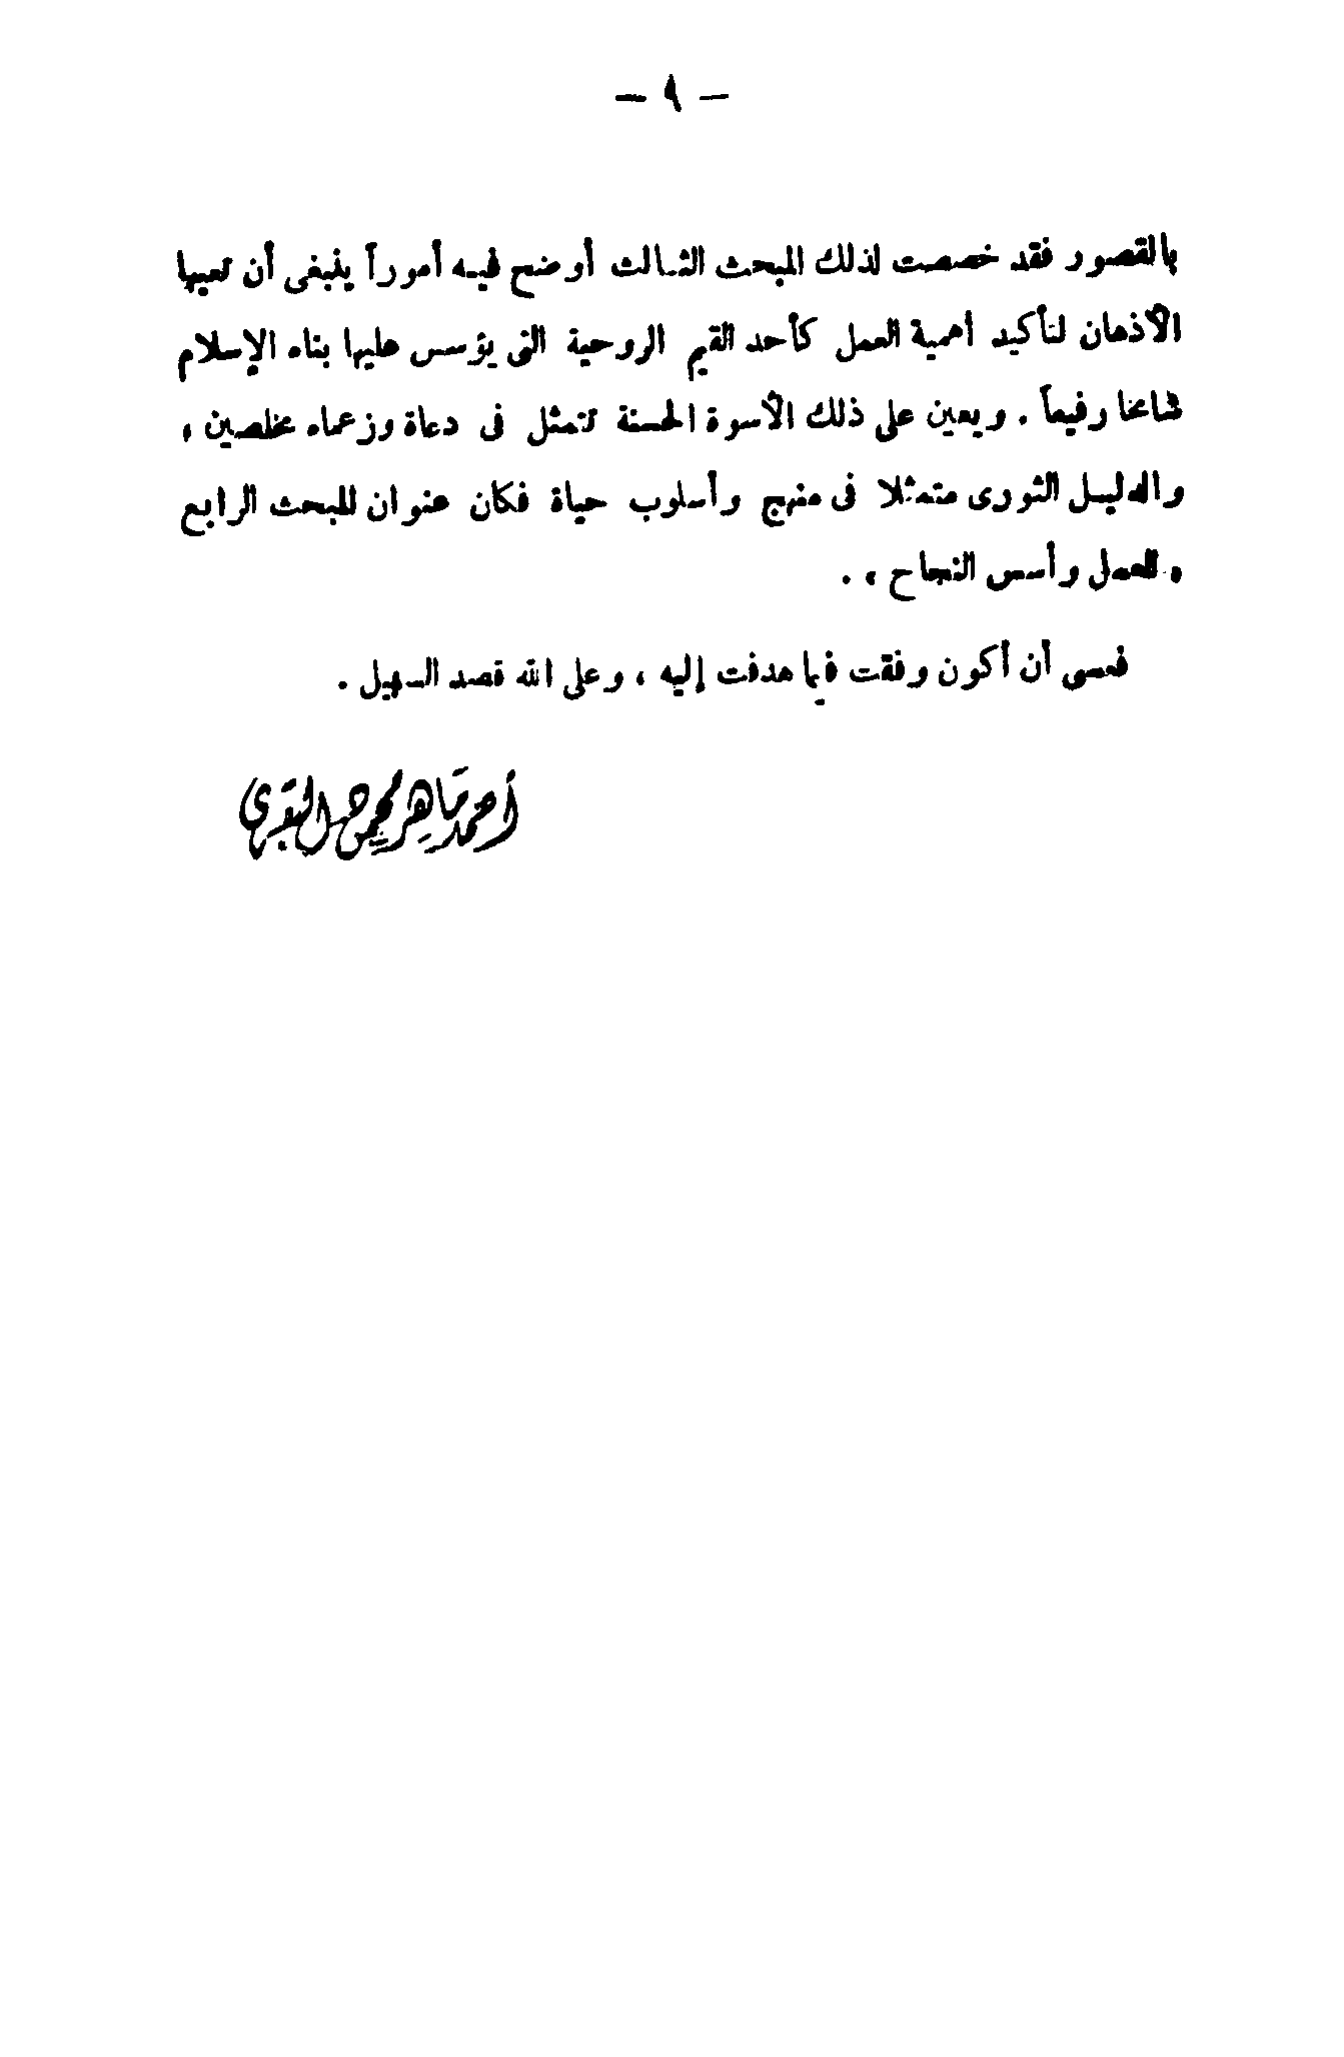 — ٩ —
بالقصور فقد خصصت لذلك المبحث الثالث أوضح فيه أموراً ينبغى أن تعيها
الأذهان لتأكيد أهمية العمل كأحد القيم الروحية التى يؤسس عليها بناء الإسلام
شامخا رفيعاً . ويعين على ذلك الأسوة الحسنة تتمثل فى دعاة وزعماء مخلصين ،
والدليل الثورى متمثلا فى منهج وأسلوب حياة فكان عنوان المبحث الرابع
« العمل وأسس النجاح » .
فعسى أن أكون وفقت فيما هدفت إليه ، وعلى الله قصد السبيل .
أحمد ماهر محمود البقري